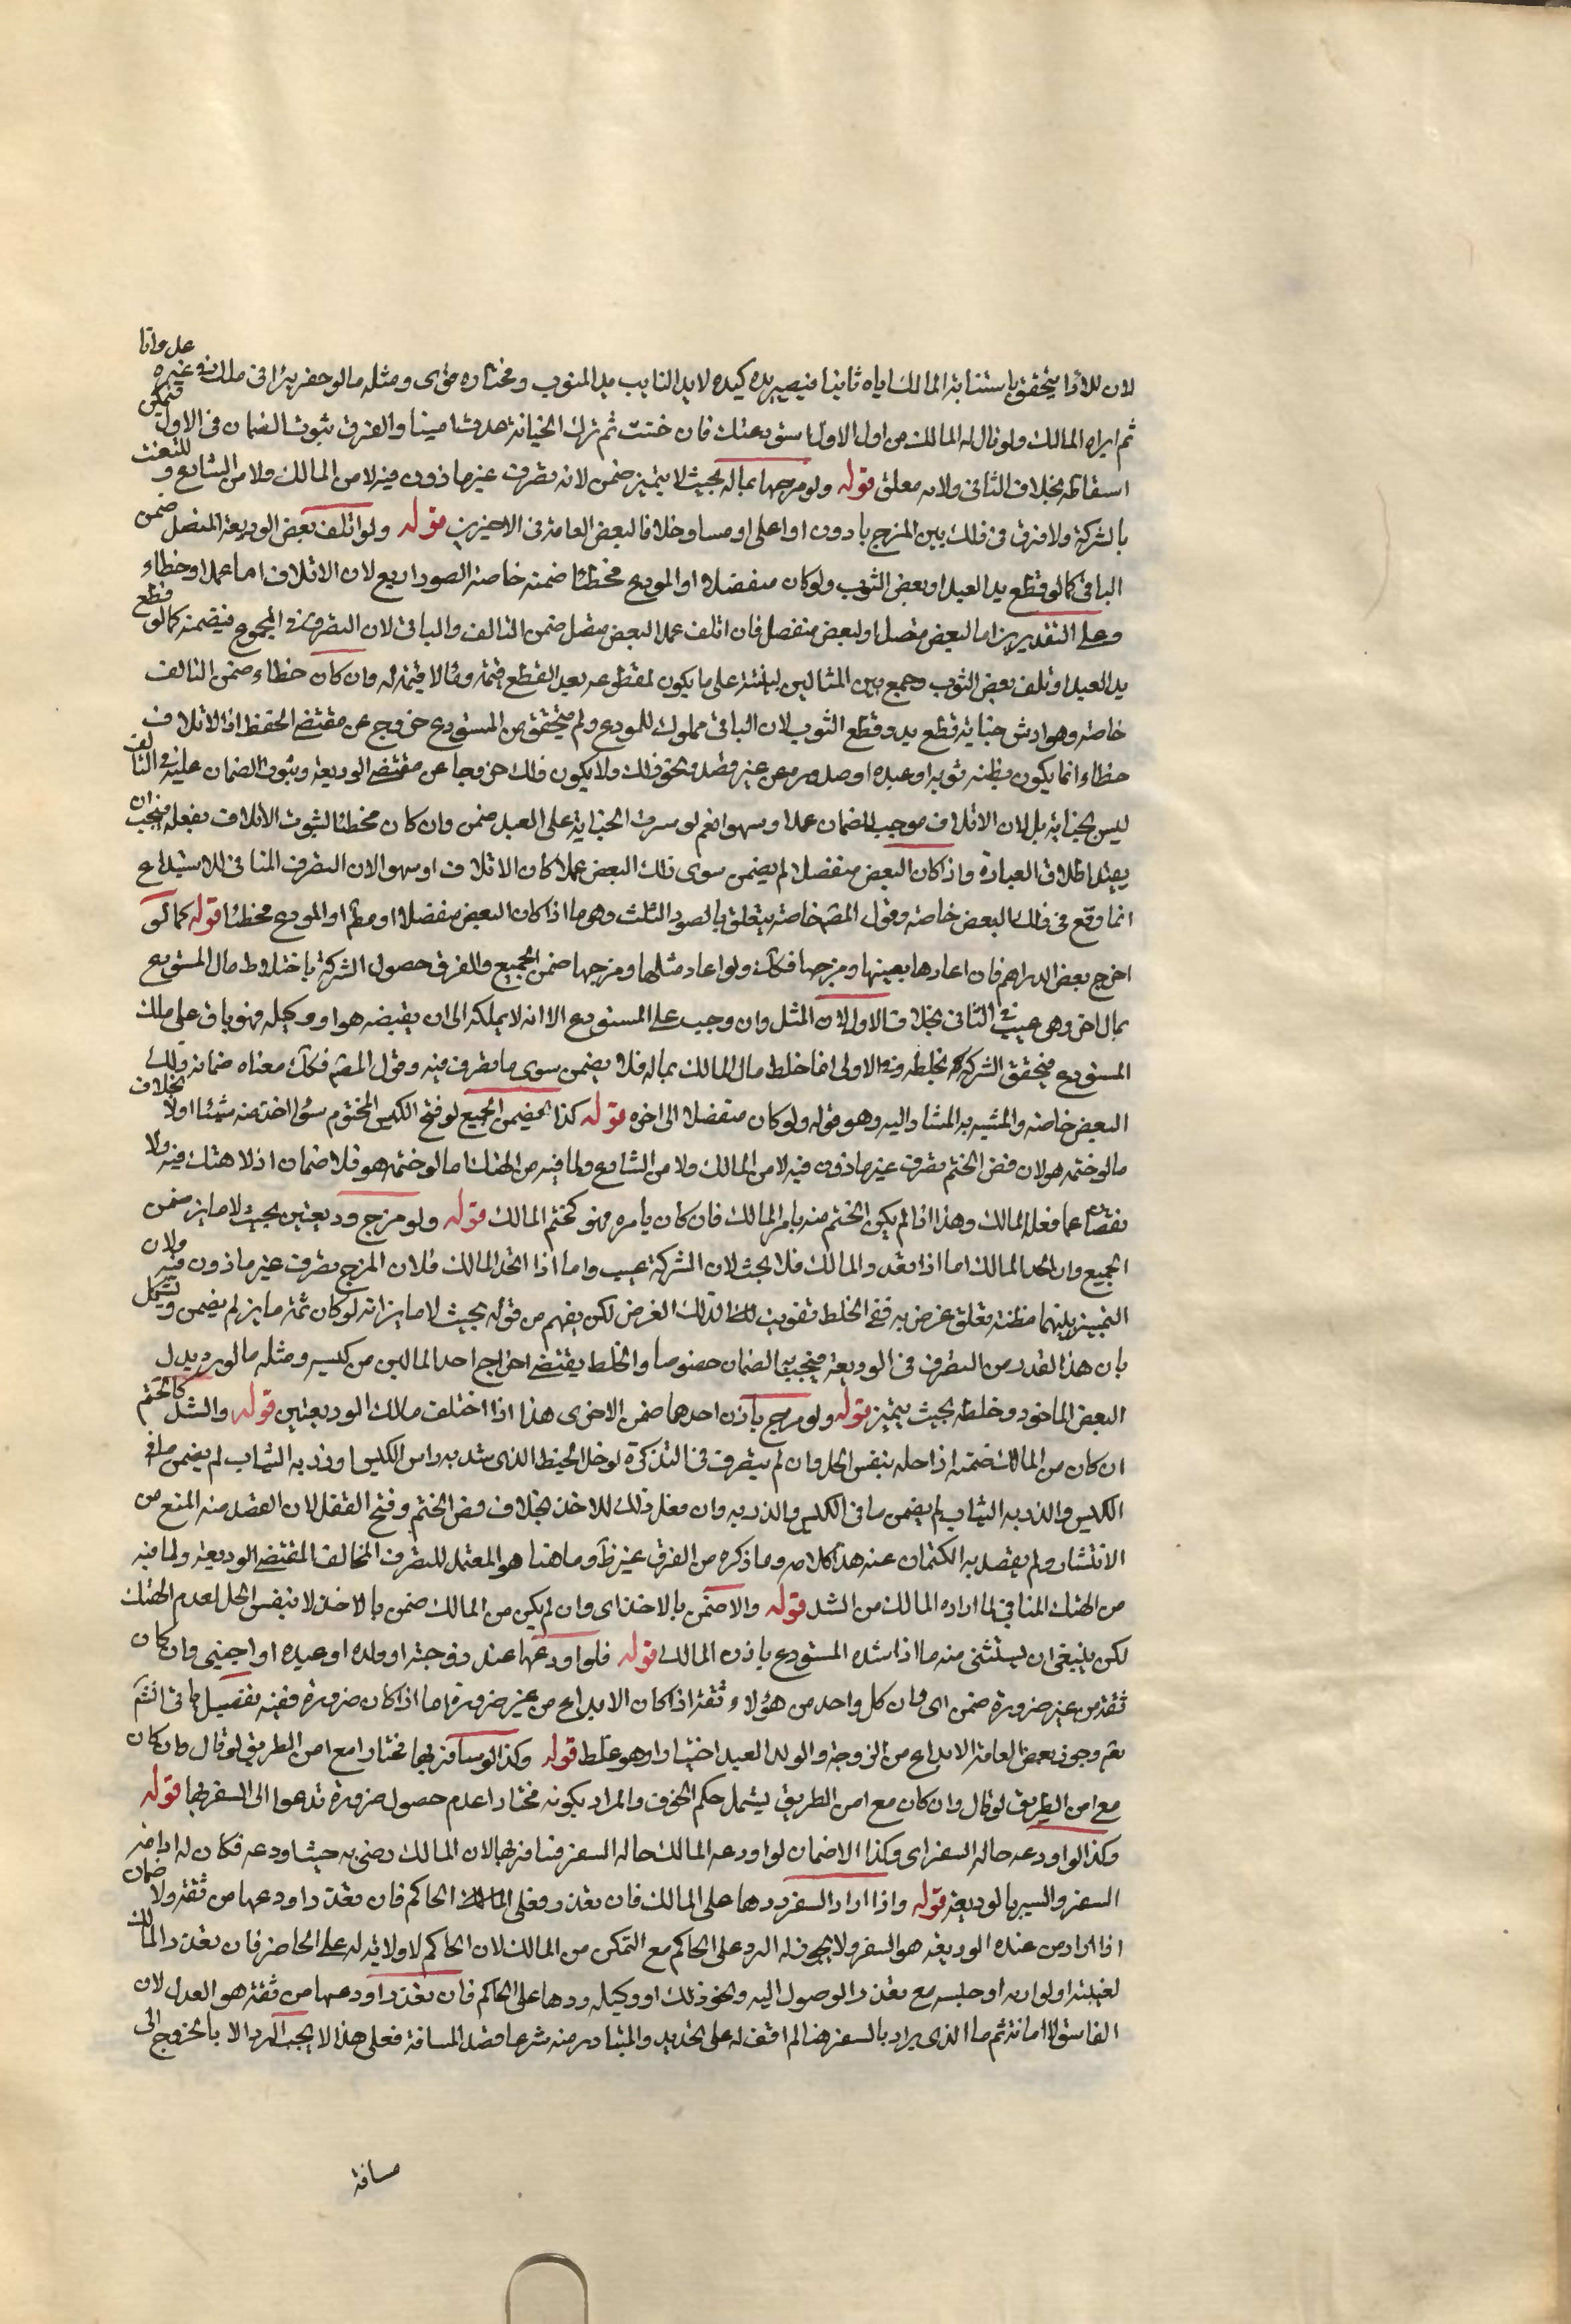 لان للاذا يتحقق باستنابة المالك اياه ثانيا فيصير يده كيده لا يد النايب يد المنوب ومختاره قوى ومثله مالو حفر بيرا فى ملك غيره
ثم ابراه المالك ولو قال له المالك من اول الاول استودعتك فان خنت ثم ترك الخيانة عدت امينا والفرق ثبوت الضمان فى الاول فيمكن
اسقاطه بخلاف الثانى ولانه معلق قوله ولو مزجها بماله بحيث لا يتميز ضمن لانه تصرف غير ماذون فيه لا من المالك ولا من الشارع و للتعيب
بالشركة ولا فرق فى ذلك بين المزج بادون او اعلى او مساو خلافا لبعض العامة فى الاخيرين قوله ولو اتلف بعض الوديعة المتصل ضمن
الباقى كما لو قطع يد العبد او بعض الثوب ولو كان منفصلا او المودع مخطئا ضمنه خاصة الصور اربع لان الاتلاف اما عمدا او خطاء
وعلى التقديرين اما لبعض متصل او لبعض منفصل فان اتلف عمدا البعض متصل ضمن التالف والباقى لان التصرف فى المجموع فيضمنه كما لو قطع
يد العبد او تلف بعض الثوب وجمع بين المثالين لينبه على ما يكون لمقطوعه بعد القطع قيمة وما لا قيمة له وان كان خطاء ضمن التالف
خاصة وهو ارش جناية قطع يد وقطع الثوب لان الباقى مملوك للمودع ولم يتحقق من المستودع خروج عن مقتضى الحفظ اذ الاتلاف
خطاء انما يكون بظنه ثوبه او عبده او صدوره عن غير قصد ونحو ذلك ولا يكون ذلك خروجا عن مقتضى الوديعة وثبوت الضمان عليه فى التالف
ليس لخيانة بل لان الاتلاف موجب للضمان عمدا وسهوا نعم لو سرت الجناية على العبد ضمن وان كان مخطئا لثبوت الاتلاف بفعله فيجب ان
يقيد اطلاق العبارة واذا كان البعض منفصلا لم يضمن سوى ذلك البعض عمدا كان الاتلاف او سهوا لان التصرف المنافى للاستيداع
انما وقع فى ذلك البعض خاصة وقول المصـ خاصة يتعلق بالصور الثلث وهو ما اذا كان البعض منفصلا او المودع مخطئا قوله كما لو
اخرج بعض الدراهم فان اعادها بعينها ومزجها فكذلك ولو اعاد مثلها ومزجها ضمن الجميع والفرق حصول الشركة باختلاط مال المستودع
بمال اخر وهى عيب فى الثانى بخلاف الاول لان المثل وان وجب على المستودع الا انه لا يملكه الى ان يقبضه هو او وكيله فهو باق على ملك
المستودع فيتحقق الشركة بخلطه وفى الاولى انما خلط مال المالك بماله فلا يضمن سوى ما تصرف فيه وقول المصـ فكذلك معناه ضمانه ذلك
البعض خاصة والمشبه به المشار اليه وهو قوله ولو كان منفصلا الى اخره قوله كذا يضمن الجميع لو فتح الكيس المختوم سواء اخذ منه شيئا اولا بخلاف
مالو ختمه هو لان فض الختم تصرف غير ماذون فيه لا من المالك ولا من الشارع ولما فيه من الهتك اما لو ختمه هو فلا ضمان اذ لا هتك فيه ولا
نقصان عما فعله المالك وهذا اذا لم يكن الختم منه بامر المالك فان كان بامره فهو كختم المالك قوله ولو مزج وديعتين بحيث لا مايز ضمن
الجميع وان اتحد المالك اما اذا تعدد المالك فلا بحث لان الشركة عيب واما اذا اتحد المالك فلان المزج تصرف غير ماذون فيه ولان
التمييز بينهما مظنة تعلق غرض به ففى الخلط تفويت لذلك الغرض لكن يفهم من قوله بحيث لا مايز انه لو كان ثمة مايز لم يضمن ويشكل
بان هذا القدر من التصرف فى الوديعة فيجب به الضمان خصوصا والخلط يقتضى اخراج احد المالين من كيسه ومثله مالو رد بدل
البعض الماخوذ وخلطه بحيث يتميز قوله ولو مزج باذن احدهما ضمن الاخرى هذا اذا اختلف مالك الوديعتين قوله والشد كالختم
ان كان من المالك ضمنه اذا حله بنفس الحل وان لم يتصرف فى التذكرة لو حل الخيط الذى شد به راس الكيس او رزمة الثياب لم يضمن ما فى
الكيس والرزمة الثياب لم يضمن ما فى الكيس والرزمة وان فعل ذلك للاخذ بخلاف فض الختم وفتح القفل لان القصد منه المنع من
الانتشار ولم يقصد به الكتمان عنه هذا كلامه وما ذكره من الفرق غير ظـ وما هنا هو المعتمد للتصرف المخالف لمقتضى الوديعة ولما فيه
من الهتك المنافى لما اراده المالك من الشد قوله والا ضمن بالاخذ اى وان لم يكن من المالك ضمن بالاخذ لا بنفس الحل لعدم الهتك
لكن ينبغى ان يستثنى منه ما اذا شده المستودع باذن المالك قوله فلو اودعها عند زوجته او ولده او عبده او اجنبى وان كان
ثقة من غير ضرورة ضمن اى وان كل واحد من هؤلاء ثقة اذا كان الايداع من غير ضرورة اما اذا كان ضرورة ففيه تفصيل ياتى انشـ
نعم وجوز بعض العامة الايداع من الزوجة والولد والعبد اختيارا وهو غلط قوله وكذا لو سافر بها مختارا مع امن الطريق لو قال وان كان
مع امن الطريق لو قال وان كان مع امن الطريق ليشمل حكم الخوف والمراد بكونه مختارا عدم حصول ضرورة تدعوا الى السفر بها قوله
وكذا لو اودعه حالة السفر اى وكذا لا ضمان لو اودعه المالك حالة السفر فسافر بها لان المالك رضى به حيث اودعه فكان له ادامة
السفر والسير بالوديعة قوله واذا اراد السفر ردها على المالك فان تعذر فعلى الحاكم فان تعذر اودعها من ثقة ولا ضمان
اذا اراد من عنده الوديعة هو السفر ولا يجوز له الرد على الحاكم مع التمكن من المالك لان الحاكم لا ولاية له على الحاضر فان تعذر المالك
لغيبته او لوارية او حبسه مع تعذر الوصول اليه ونحو ذلك او وكيله ردها على الحاكم فان تعذر اودعها من ثقة هو العدل لان
الفاسق لا امانة ثم ما الذى يراد بالسفر هنا لم اقف له على تحديد والمتبادر منه شرعا قصد المسافة فعلى هذا لا يجب الرد الا بالخروج الى
مسافة